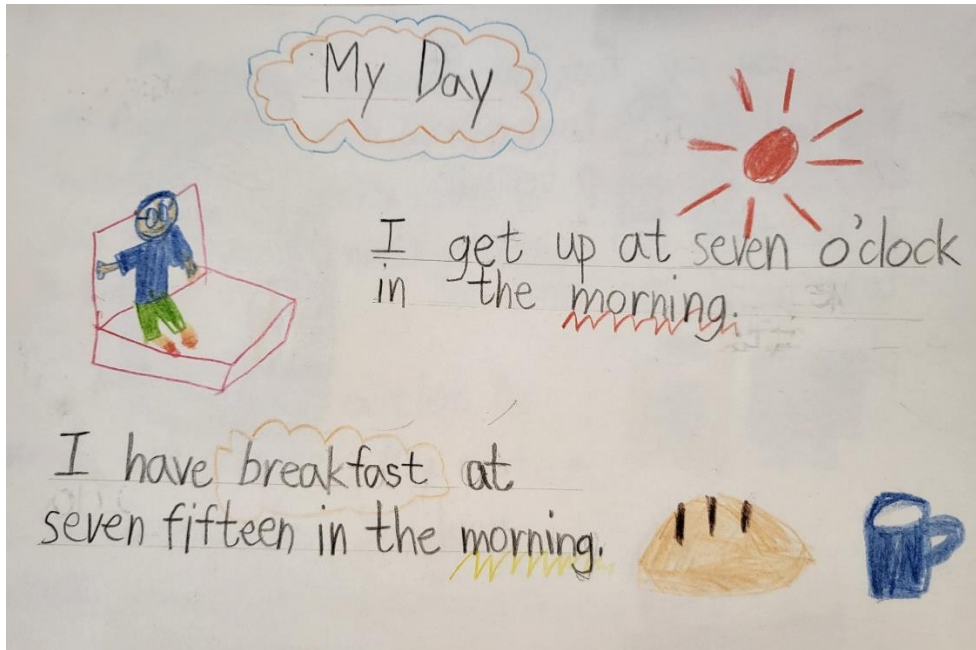 My Day
I get up at seven o'clock
in the morning.
I have breakfast at
seven fifteen in the morning.